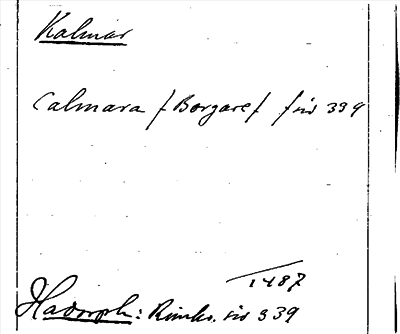 Kalmar
Calmara /Borgare/ sid 339
1487
Hadorph: Rimkr. sid 339